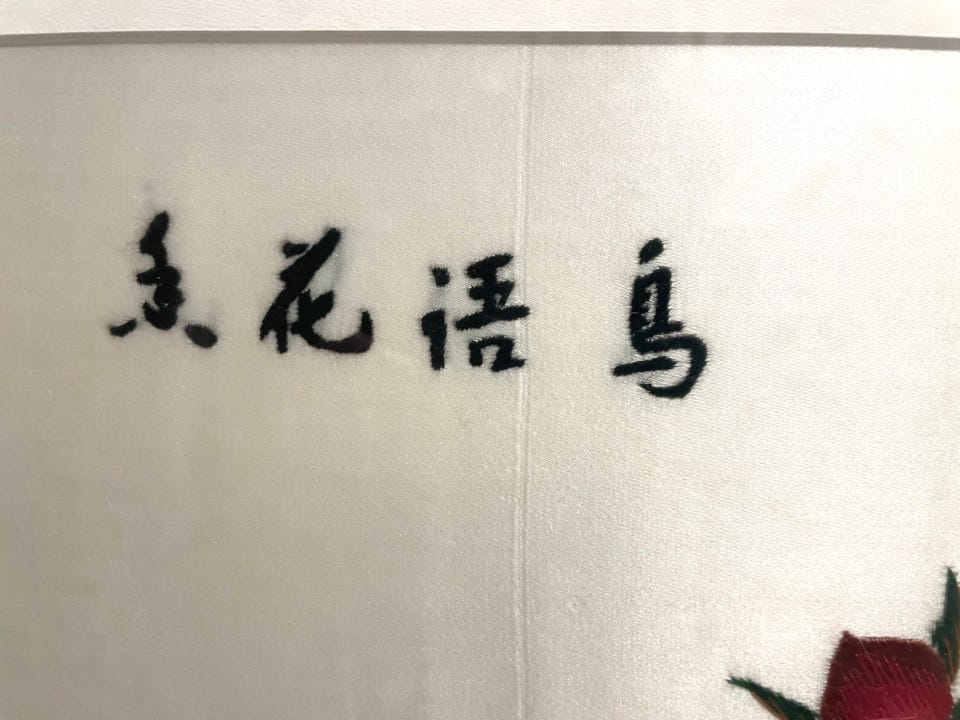 鸟语花香